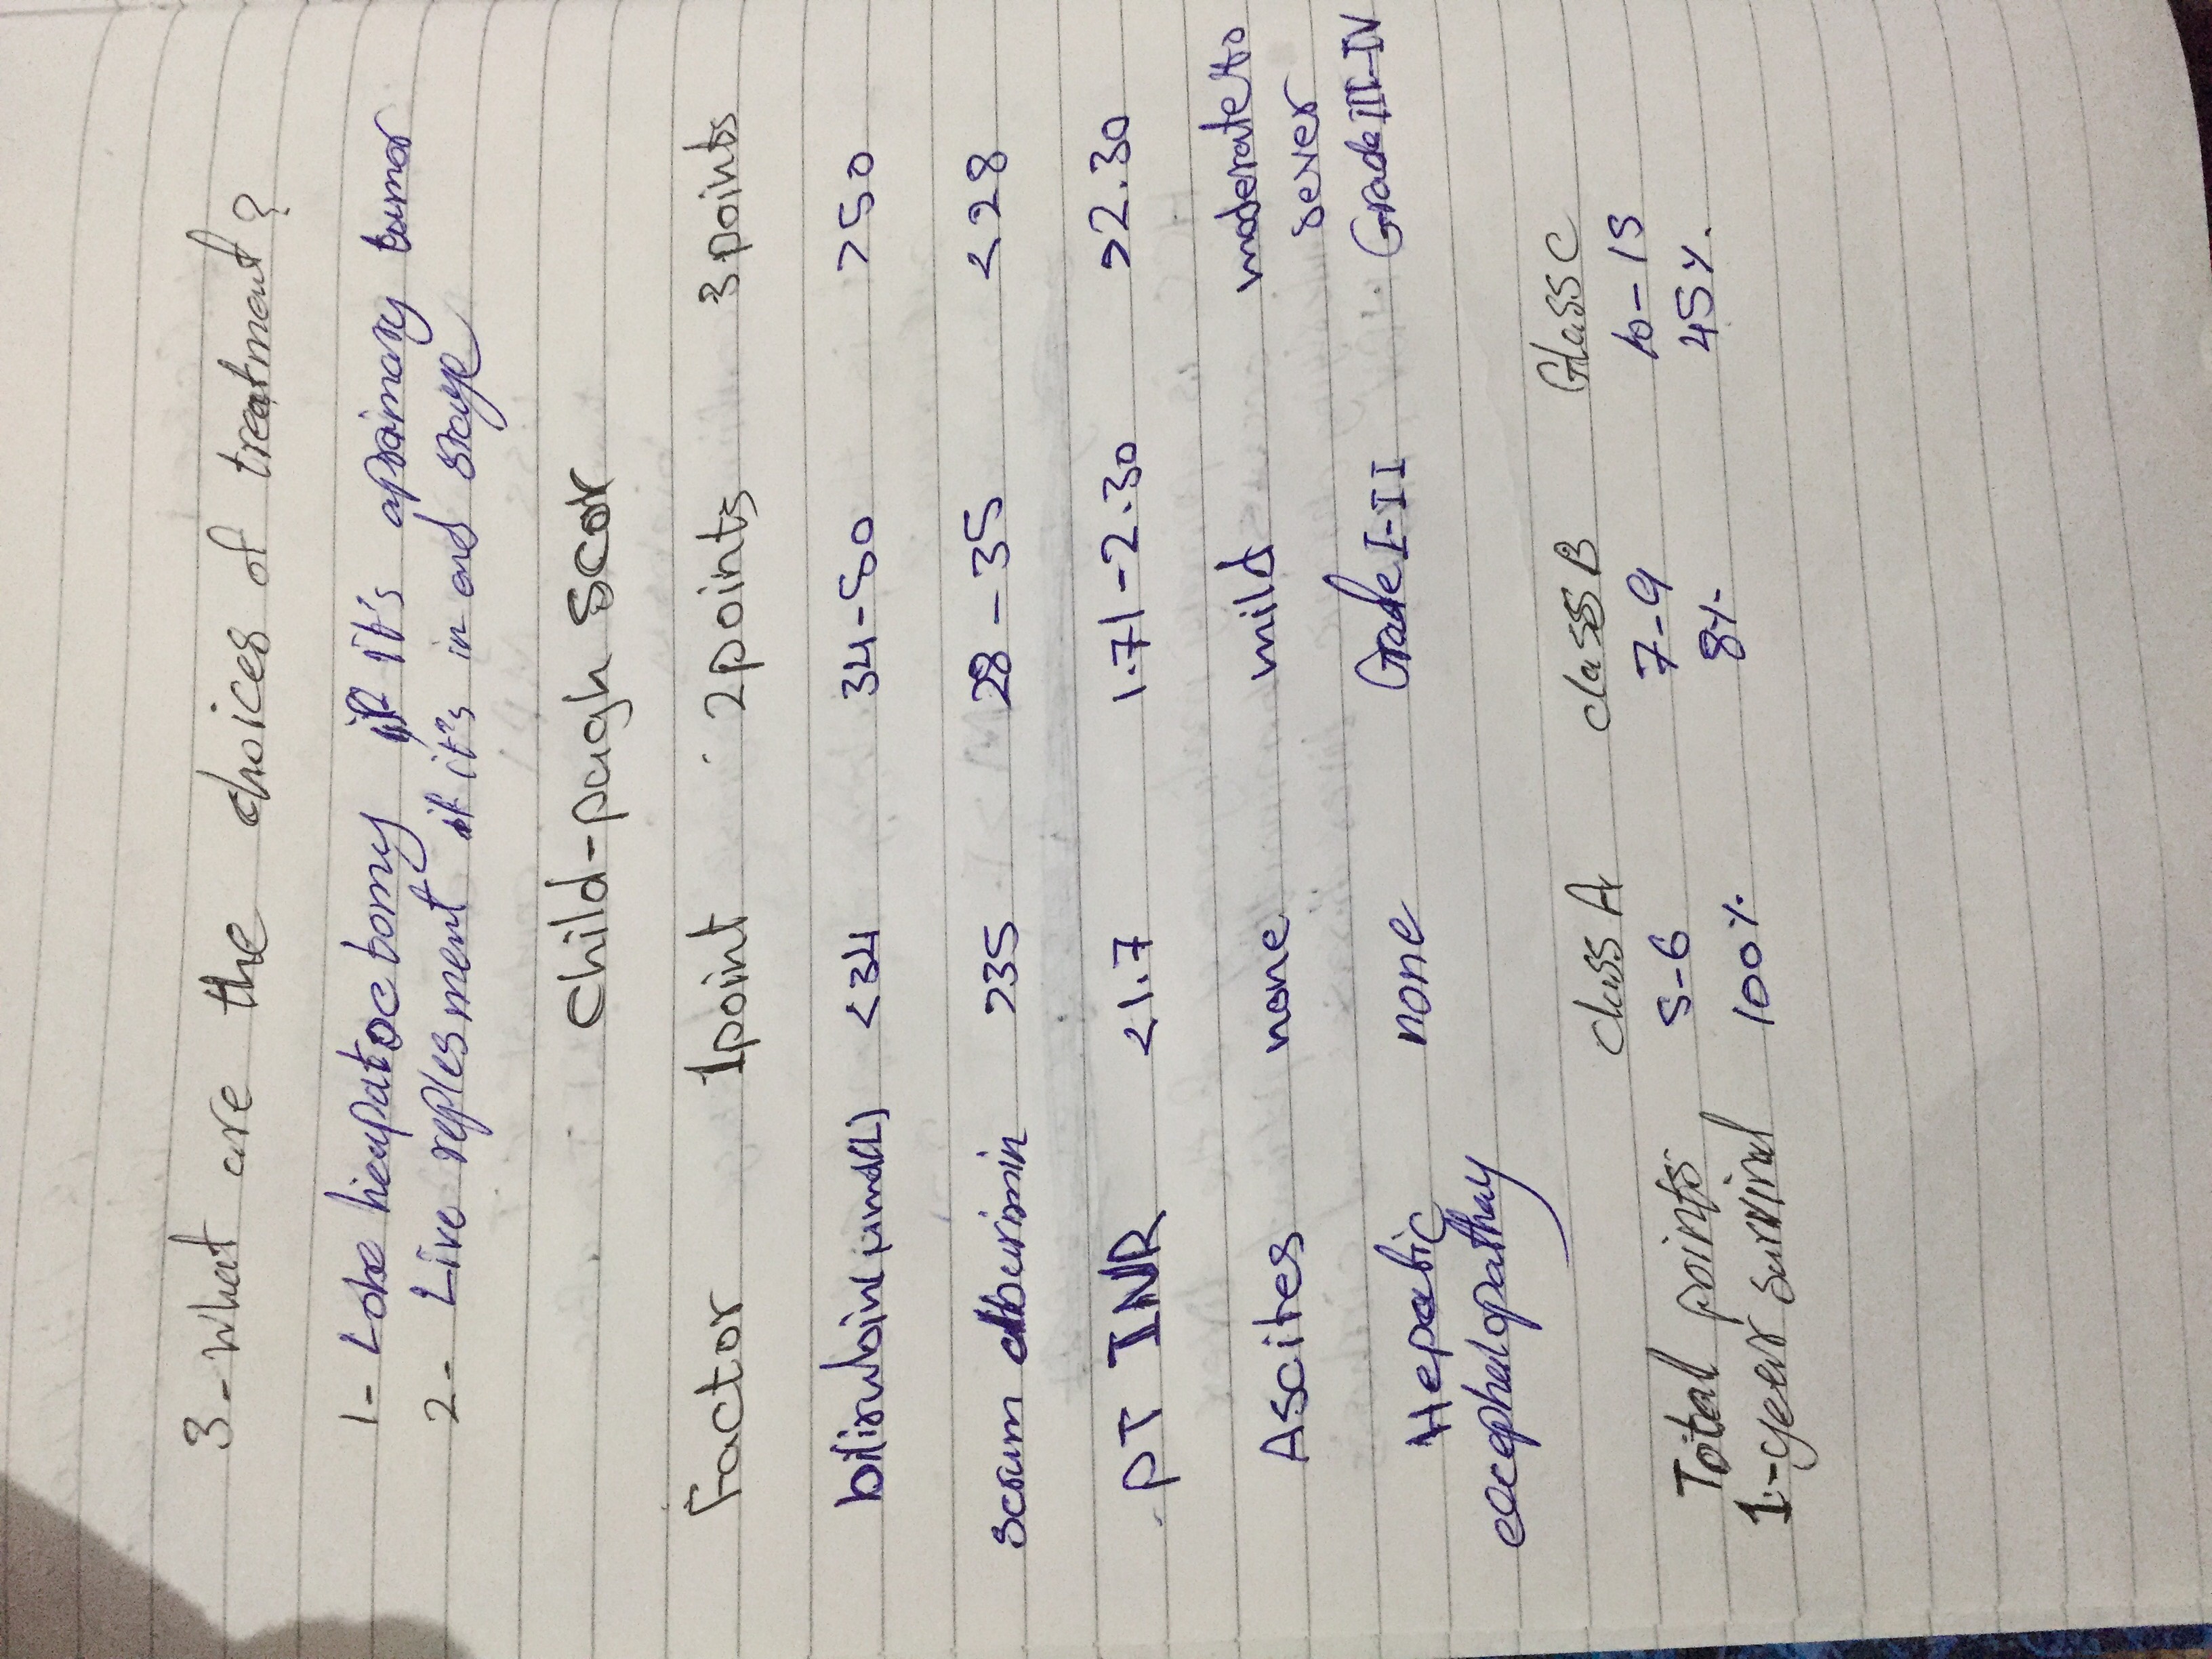 3-what are the choices of treatment?
1- Lobe hiepatoctomy if it's aprimary tumor
2- Live replesment if it's in end stage
Child-pough Scor
Factor 1point 2points 3points
bilirubin(µmol(L) <34 34-50 >50
serum alburimin >35 28-35 <28
PT INR <1.7 1.71-2.30 >2.30
Ascites none mild moderate to
sever
Hepatic none Grade I-II Grade III-IV
eccephelopathay
class A class B Class C
Total points 5-6 7-9 10-15
1-year survival 100% 8% 45%